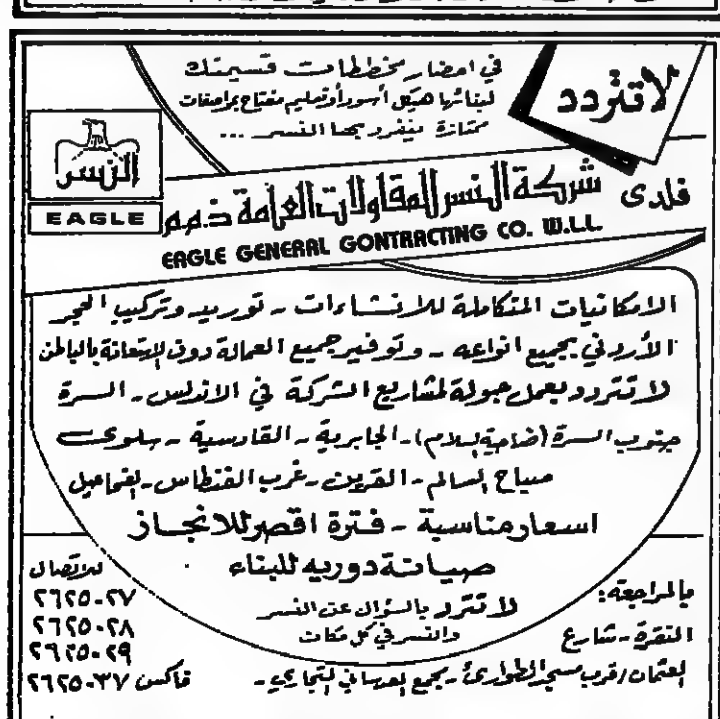 لا تتردد
في احضار مخططات قسيمتك
لبنائها هيكل أسود أو تسليم مفتاح بمواصفات
ممتازة ينفرد بها النسر ...
النسر
EAGLE
فلدى شركة النسر للمقاولات العامة ذ.م.م
EAGLE GENERAL GONTRACTING CO. W.L.L.
الامكانيات المتكاملة للانشاءات - توريد وتركيب الحجر
الأردني بجميع انواعه - وتوفير جميع العمالة دون الاستعانة بالباطن
لا تتردد بعمل جولة لمشاريع الشركة في الاندلس - السرة
جنوب السرة (ضاحية السلام) - الجابرية - القادسية - سلوى
صباح السالم - القرين - غرب الفنطاس - الفحاحيل
اسعار مناسبة - فترة اقصر للانجاز
صيانة دوريه للبناء
لا تتردد بالسؤال عن النسر
والنسر في كل مكان
بالمراجعة:
النقرة - شارع
العثمان / قرب مسجد الطوارئ - مجمع العدساني التجاري -
للاتصال
٢٦٢٥٠٢٧
٢٦٢٥٠٢٨
٢٦٢٥٠٢٩
فاكس ٢٦٢٥٠٣٧